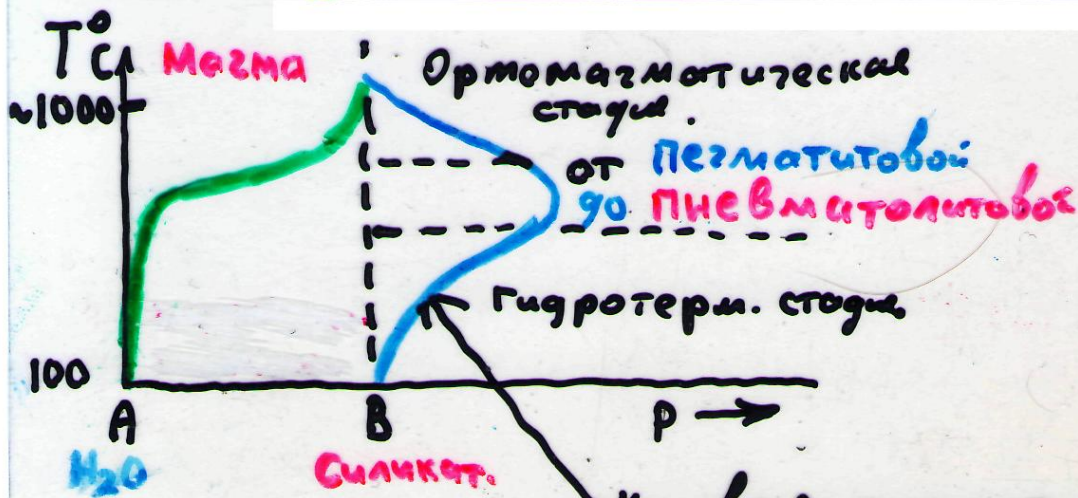 T°C
Магма
Ортомагматическая
стадия.
~1000
от пегматитовой
до пневматолитовой
Гидротерм. стадия
100
A
B
P
H₂O
Силикат.